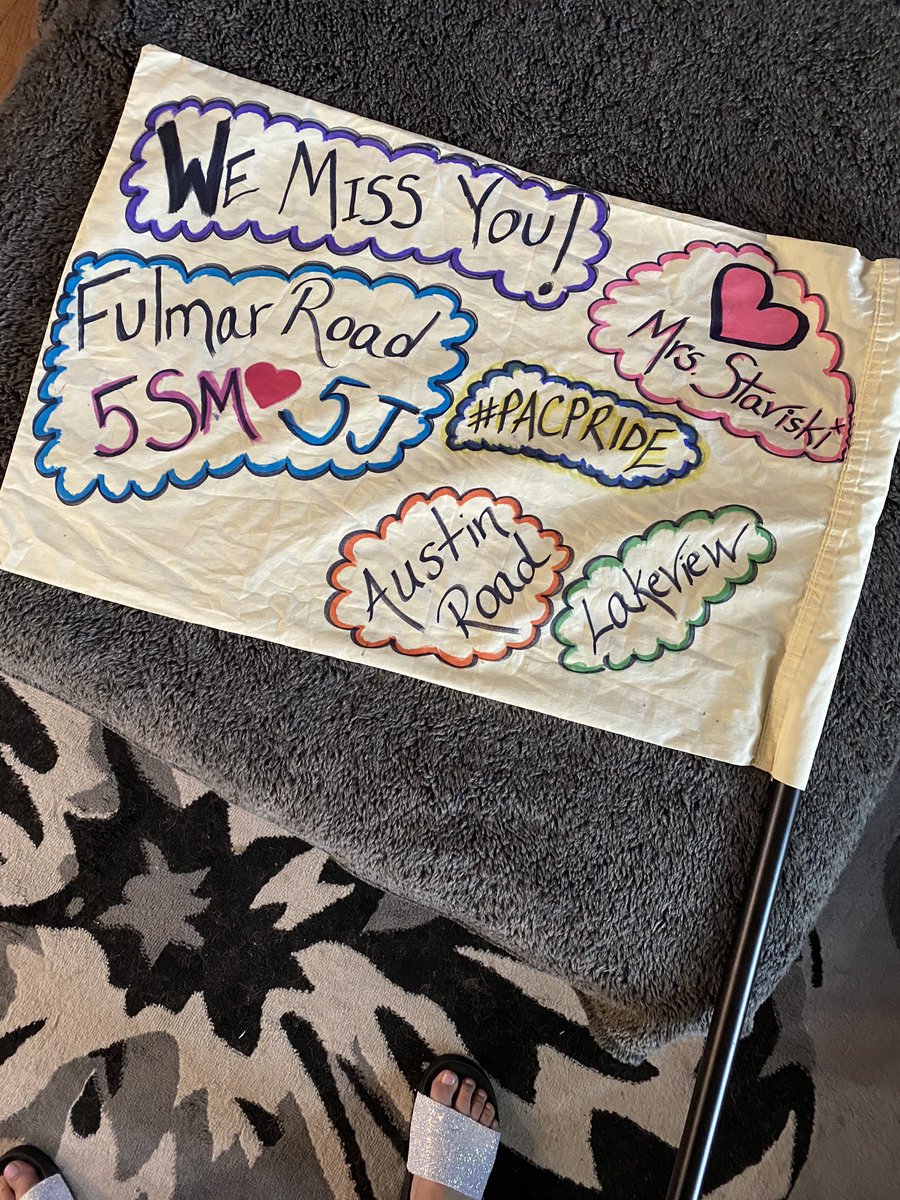 We Miss You!
Fulmar Road
5SM 5J
Mrs. Staviski
#PACPRIDE
Austin
Road
Lakeview